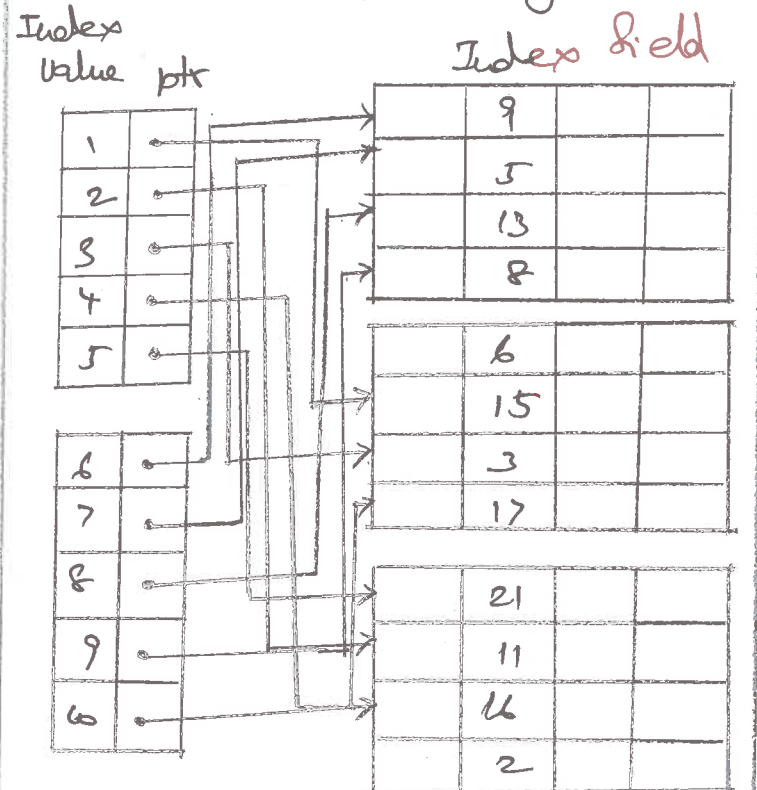 Index
value ptr
Index field
1
2
3
4
5
6
7
8
9
10
9
5
13
8
6
15
3
17
21
11
16
2